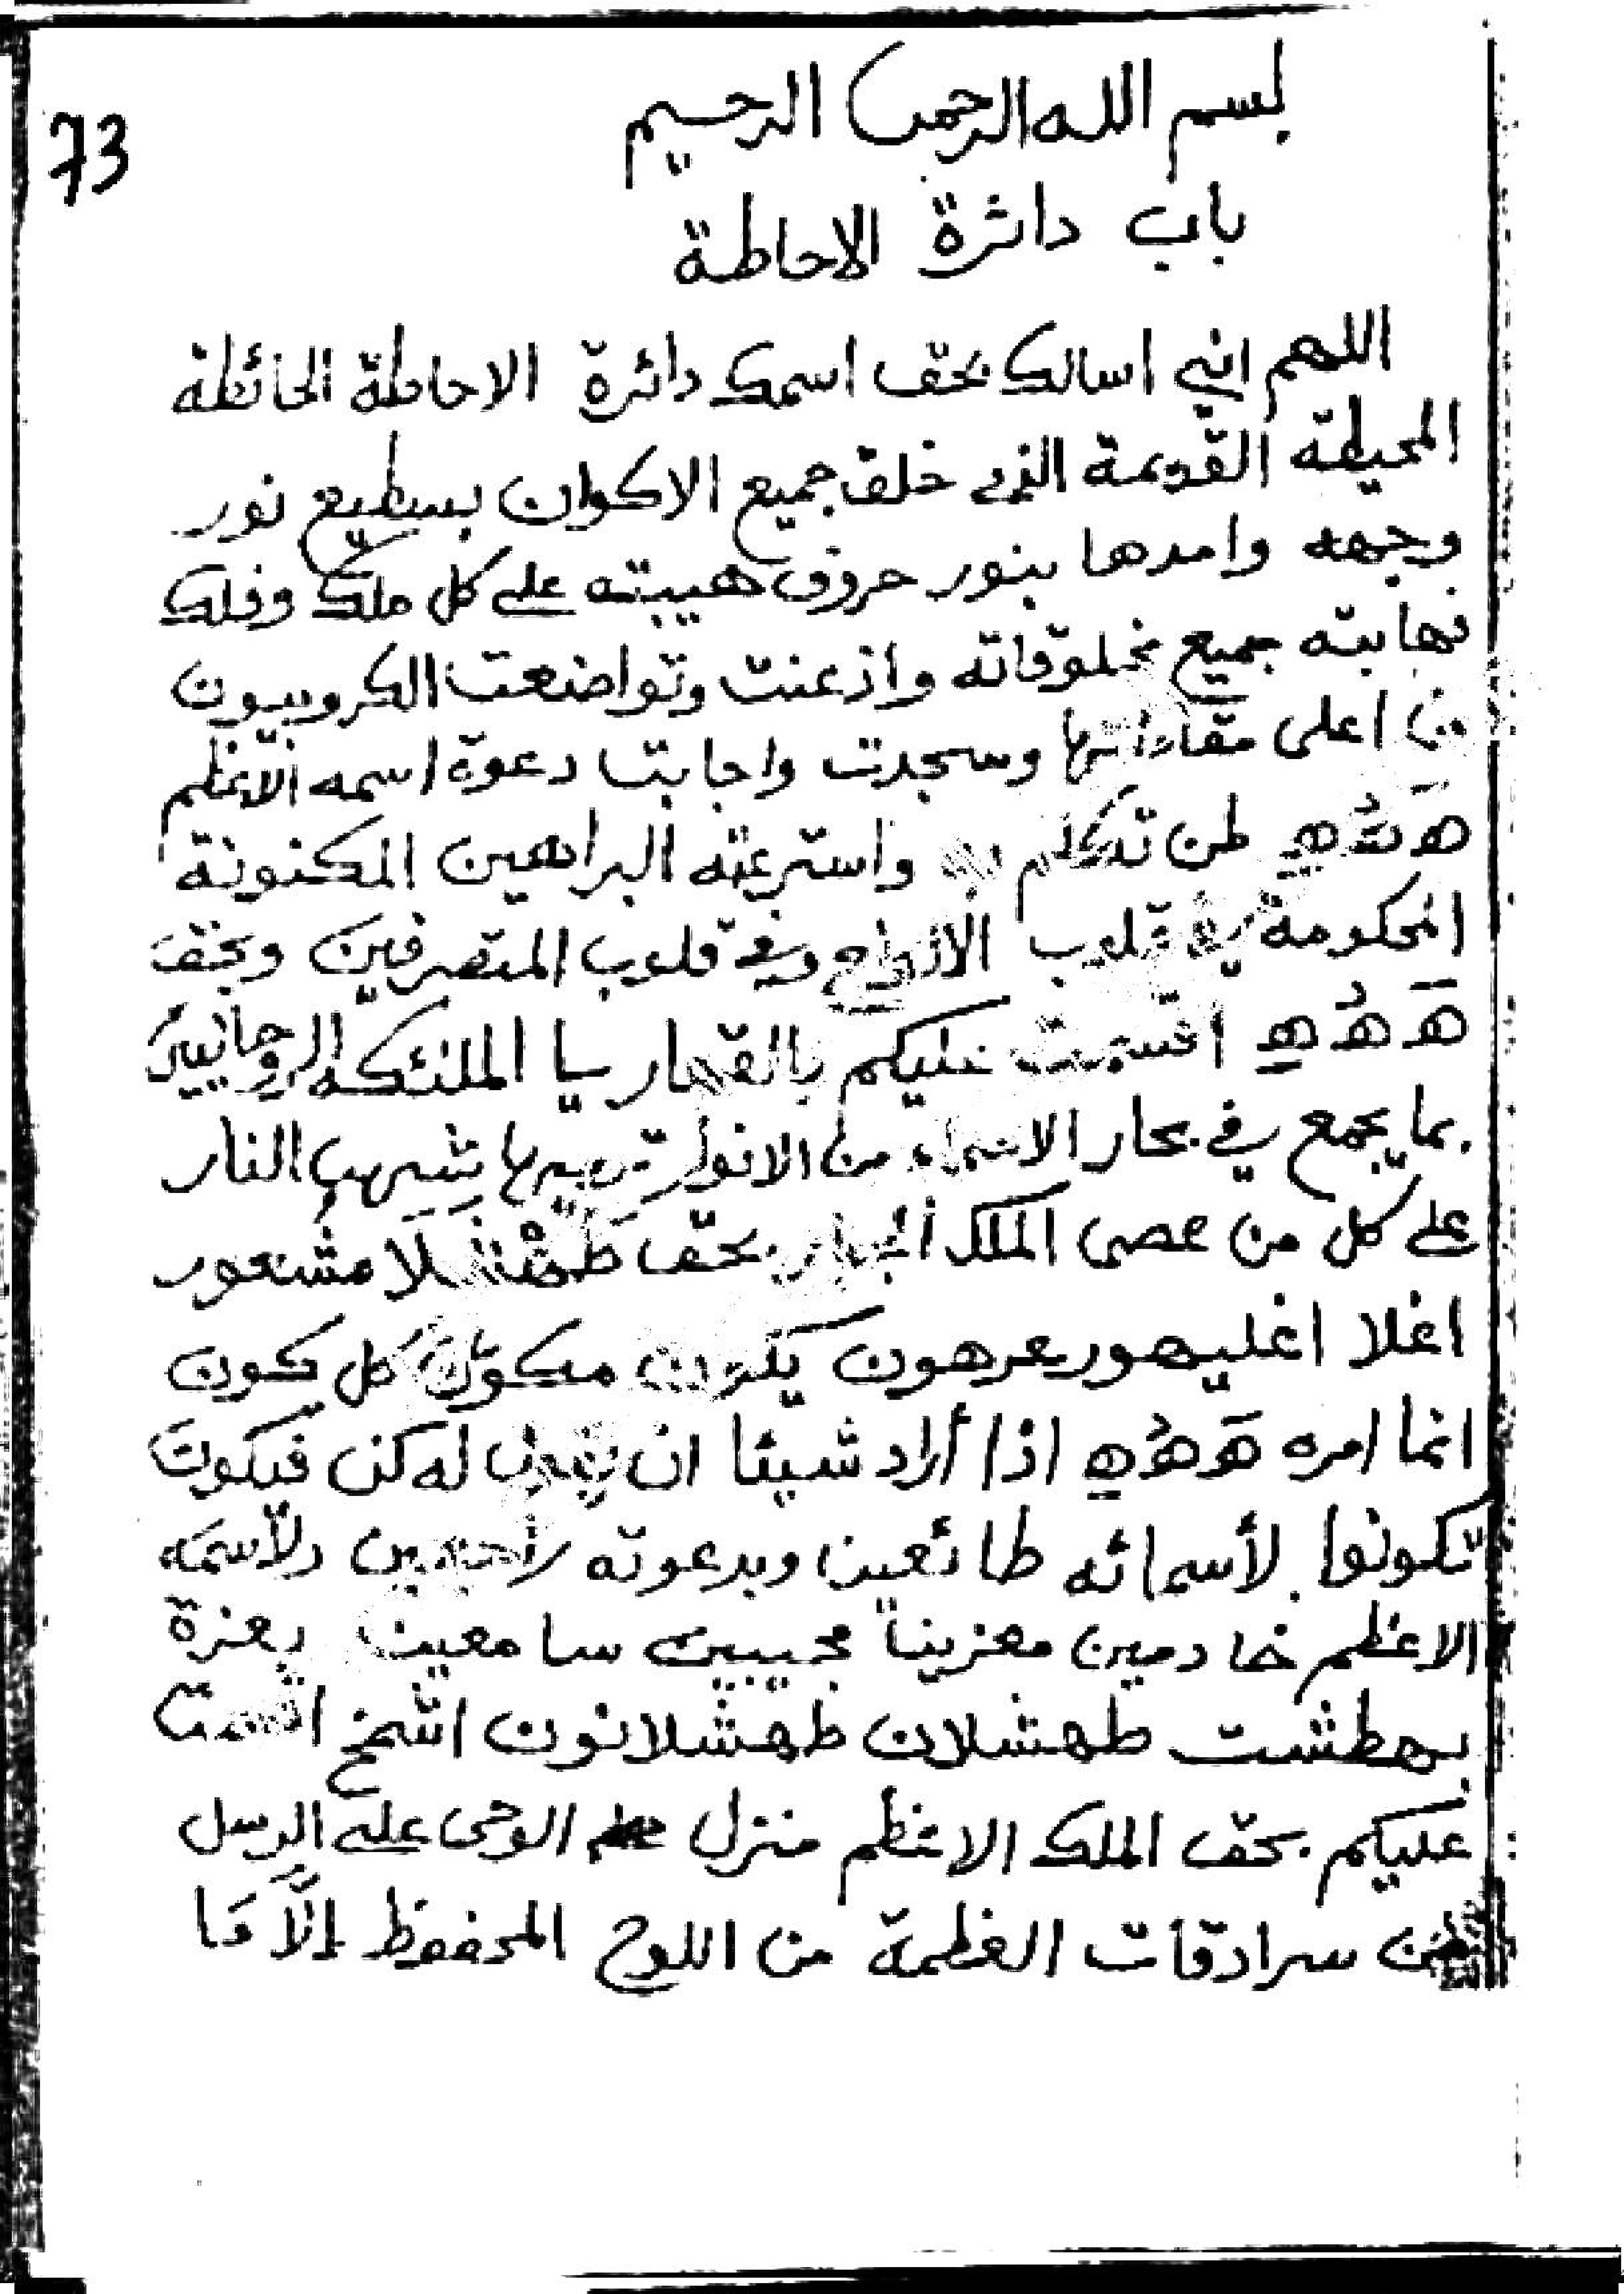 73
بسم الله الرحمن الرحيم
باب دائرة الاحاطة
اللهم اني اسالك بحق اسمك دائرة الاحاطة الحائطة
المحيطة القديمة الذي خلق جميع الاكوان بسطيع نور
وجهه وامدها بنور حروف هيبته على كل ملك وفلك
فهابته جميع مخلوقاته واذعنت وتواضعت الكروبيون
من اعلى مقاماتها وسجدت واجابت دعوة اسمه الاعظم
هَهُهِ لمن تكلم به البراهين المكنونة
المحكومة في قلوب وفي قلوب المتصرفين وبحق
هَهُهِ اقسمت عليكم بالقهار يا الملئكة الروحانيين
بما يجمع في بحار الاسماء من الانوار شهب النار
على كل من عصى الملك الجبار بحق
اغلا مكوّن كل كون
انما امره هَهُهِ اذا أراد شيئا ان يقول له كن فيكون
تكونوا لأسمائه طائعين وبدعوته ولأسمه
الاعظم خادمين معزينا مجيبين سامعين بعزة
بهطشت طهشلان طهشلانون اشمخ اقسمت
عليكم بحق الملك الاعظم منزل الوحى على الرسل
من سرادقات العظمة من اللوح المحفوظ إلّا مَا